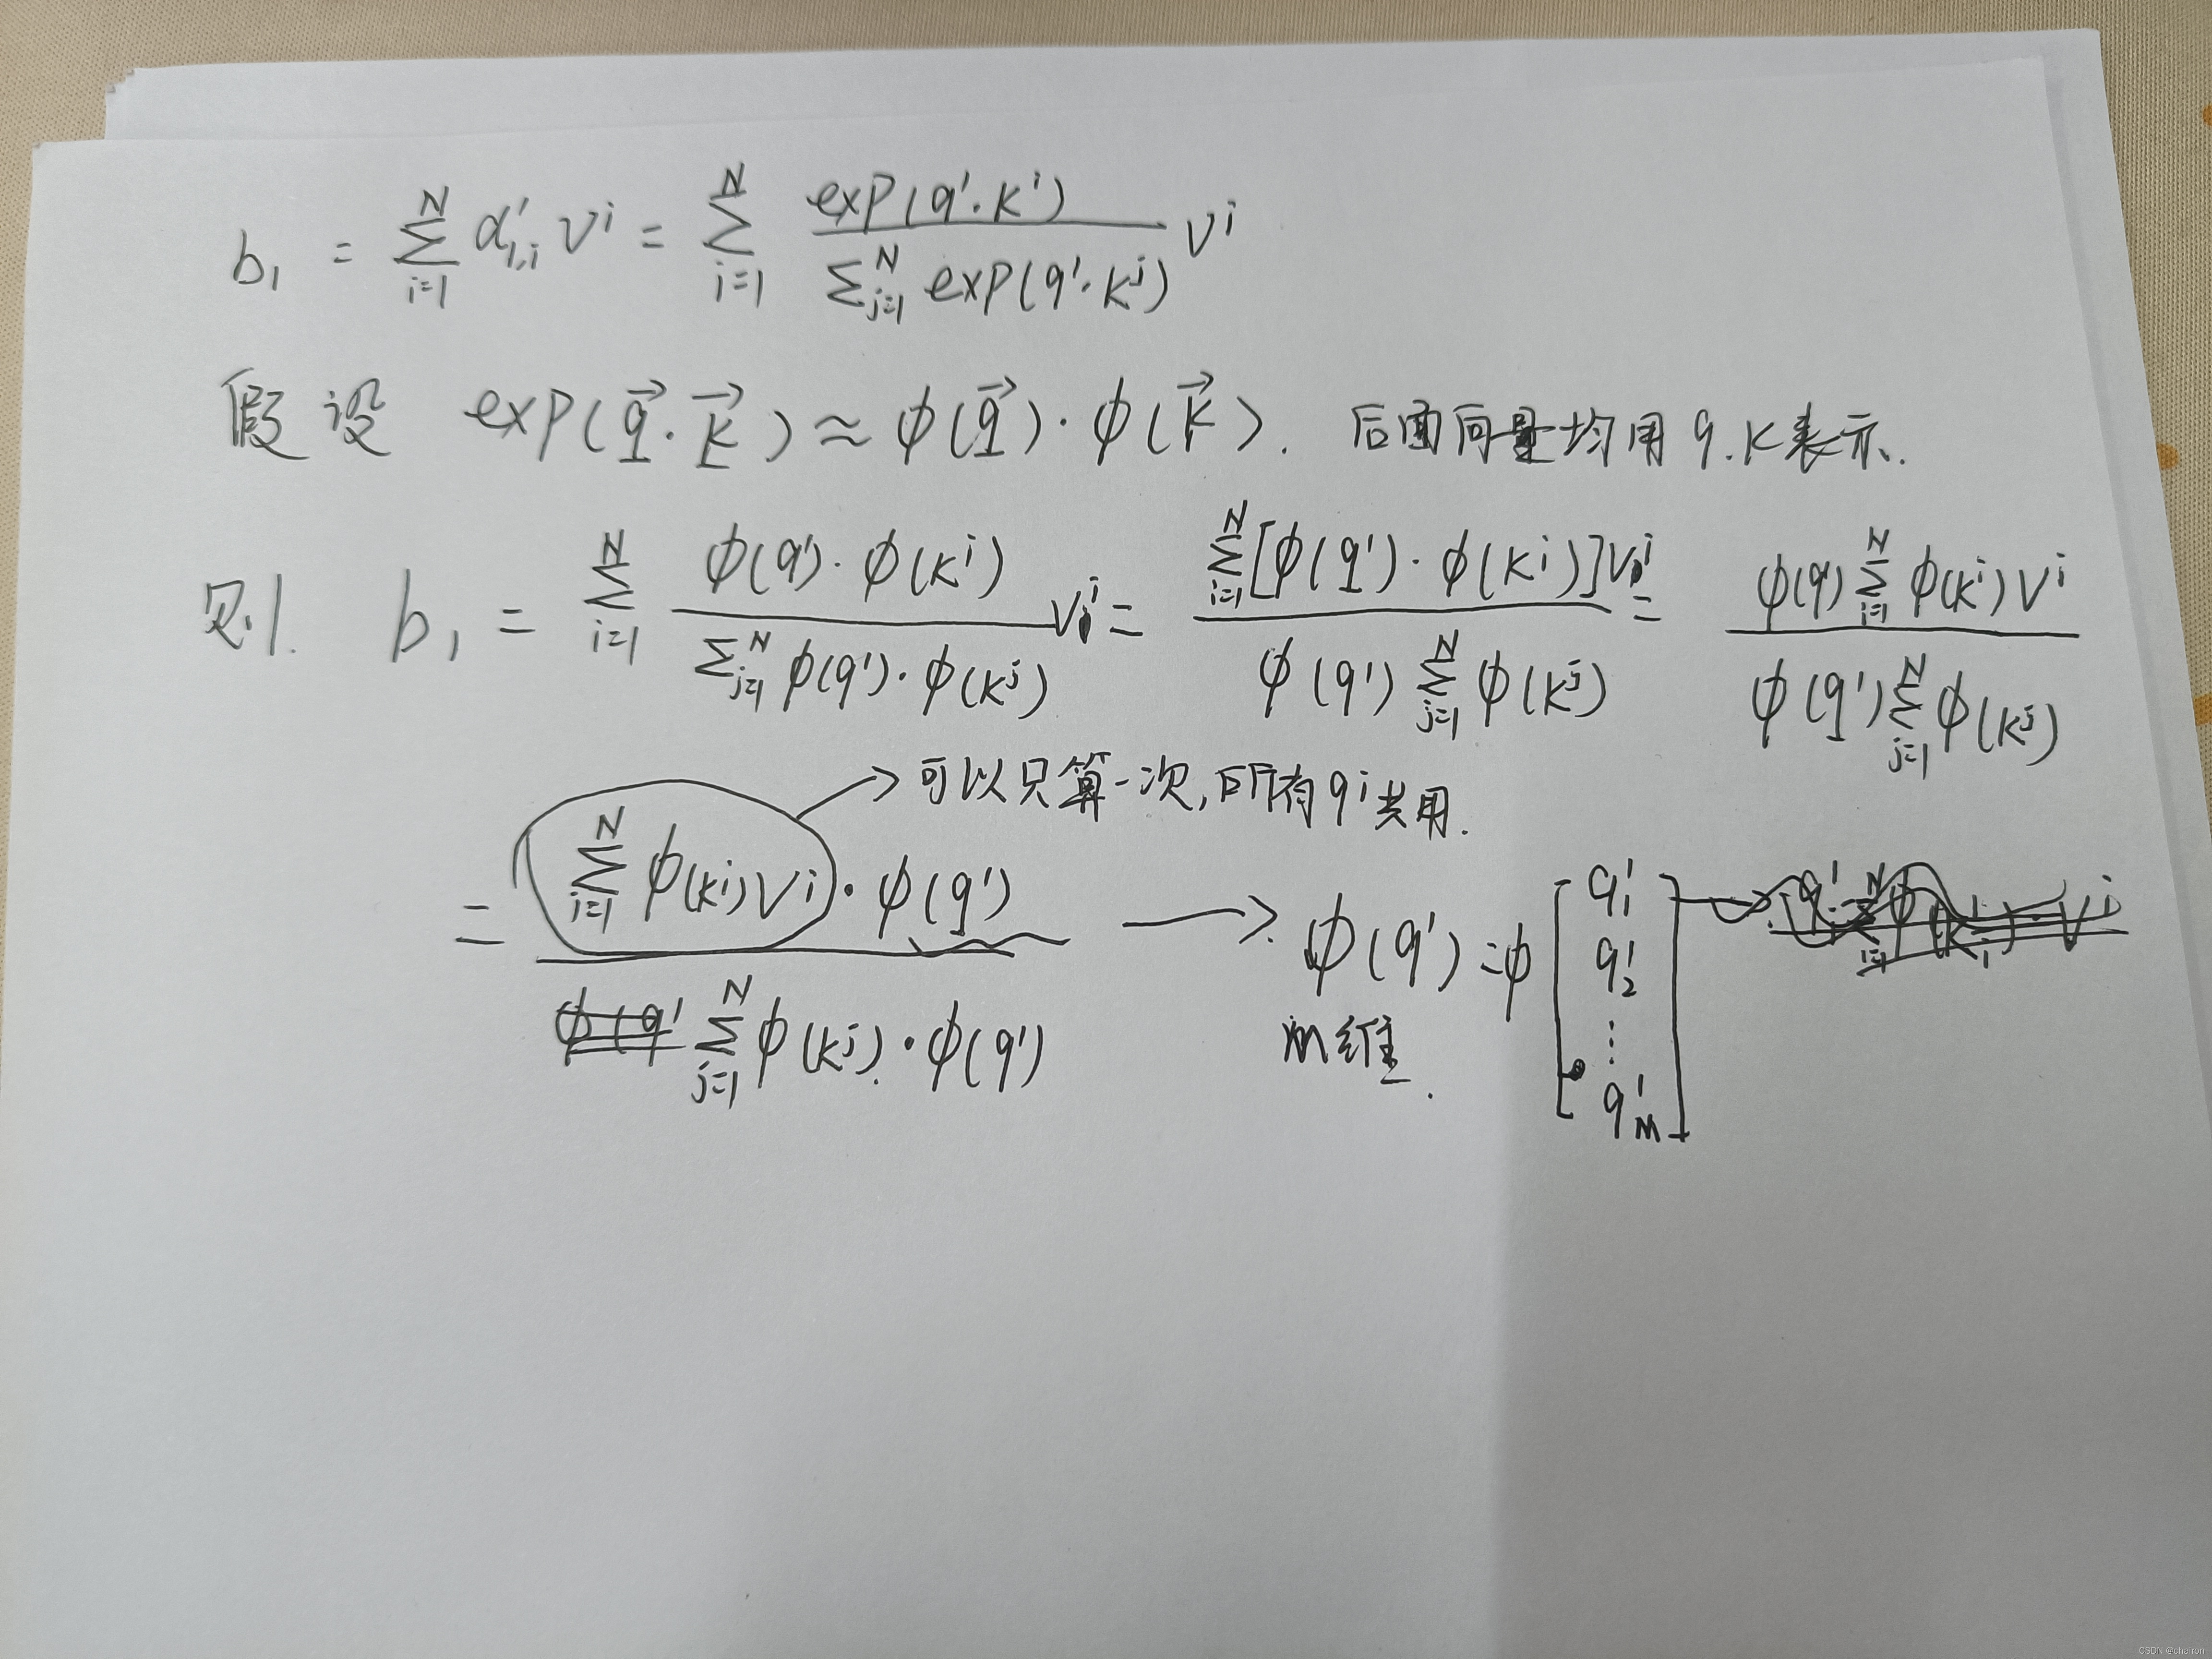 b₁ = Σ_{i=1}^{N} α'_{1,i} vⁱ = Σ_{i=1}^{N} exp(q¹·kⁱ) / Σ_{j=1}^{N} exp(q¹·kʲ) vⁱ
假设 exp(q⃗·k⃗) ≈ φ(q⃗)·φ(k⃗). 后面向量均用 q.k表示.
则. b₁ = Σ_{i=1}^{N} φ(q¹)·φ(kⁱ) / Σ_{j=1}^{N} φ(q¹)·φ(kʲ) vⁱ = Σ_{i=1}^{N} [φ(q¹)·φ(kⁱ)]vⁱ / φ(q¹) Σ_{j=1}^{N} φ(kʲ) = φ(q¹) Σ_{i=1}^{N} φ(kⁱ) vⁱ / φ(q¹) Σ_{j=1}^{N} φ(kʲ)
→ 可以只算一次, 所有 qi 共用.
= Σ_{i=1}^{N} φ(kⁱ)vⁱ · φ(q¹) / Σ_{j=1}^{N} φ(kʲ)·φ(q¹) → φ(q¹) = φ [q¹₁ q¹₂ ⋮ q¹_M]
M维.
CSDN @chairon